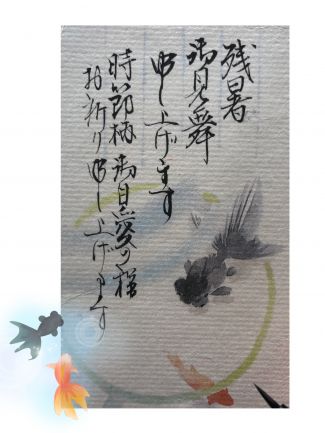 残暑
御見舞
申し上げます
時節柄御自愛の程
お祈り申し上げます